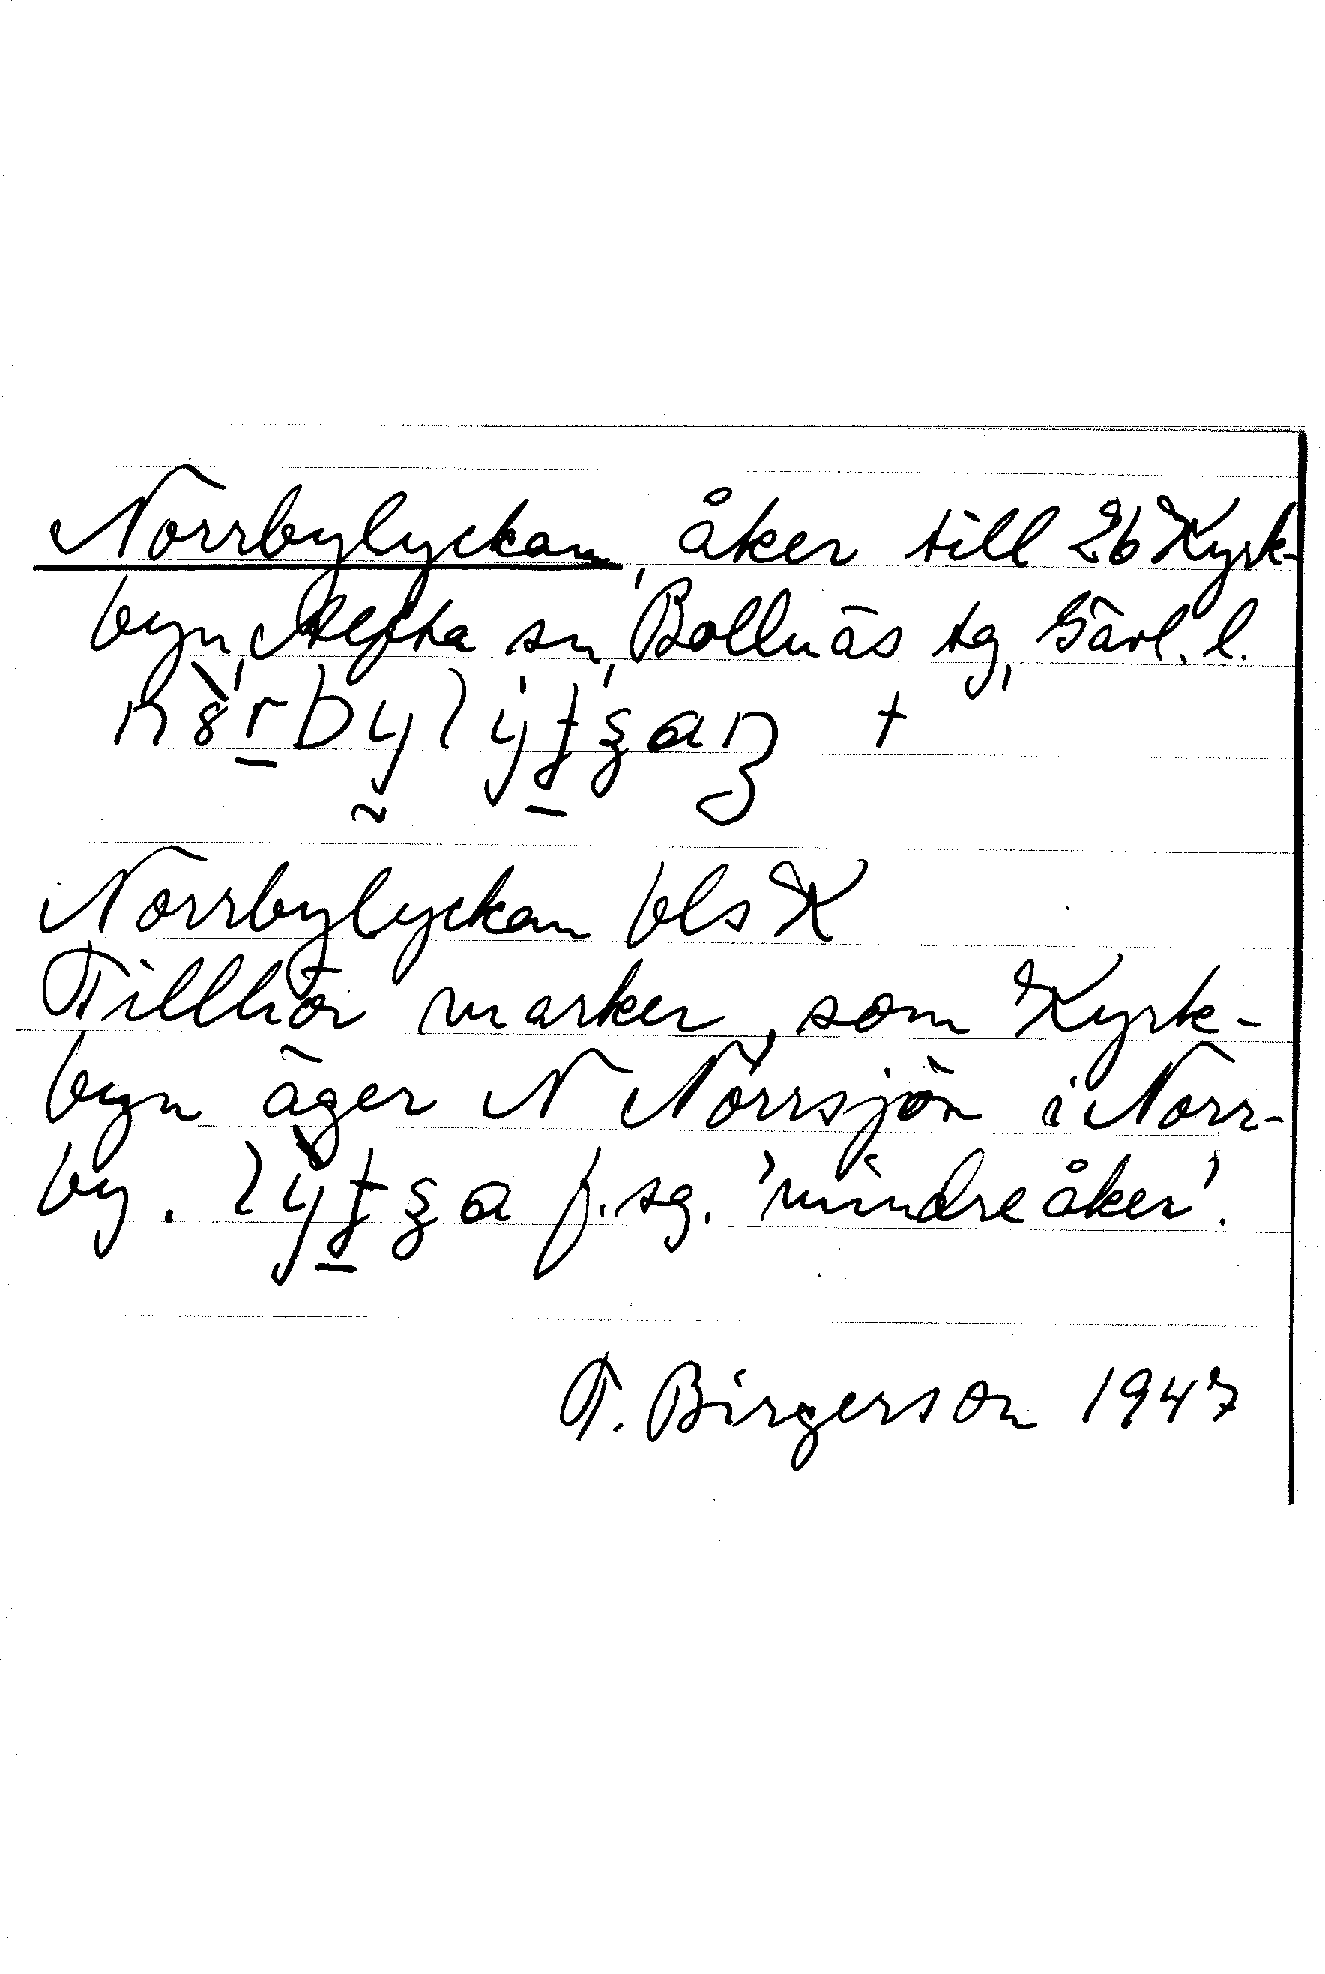 Norrbylyckan, åker till 26 Kyrk-
byn, Alfta sn, Bollnäs tg, Gävl. l.
+
Norrbylyckan bls K
Tillhör marker, som Kyrk-
byn äger N Norrsjön i Norr-
by. f. sg. 'mindre åker'.
T. Birgerson 1947